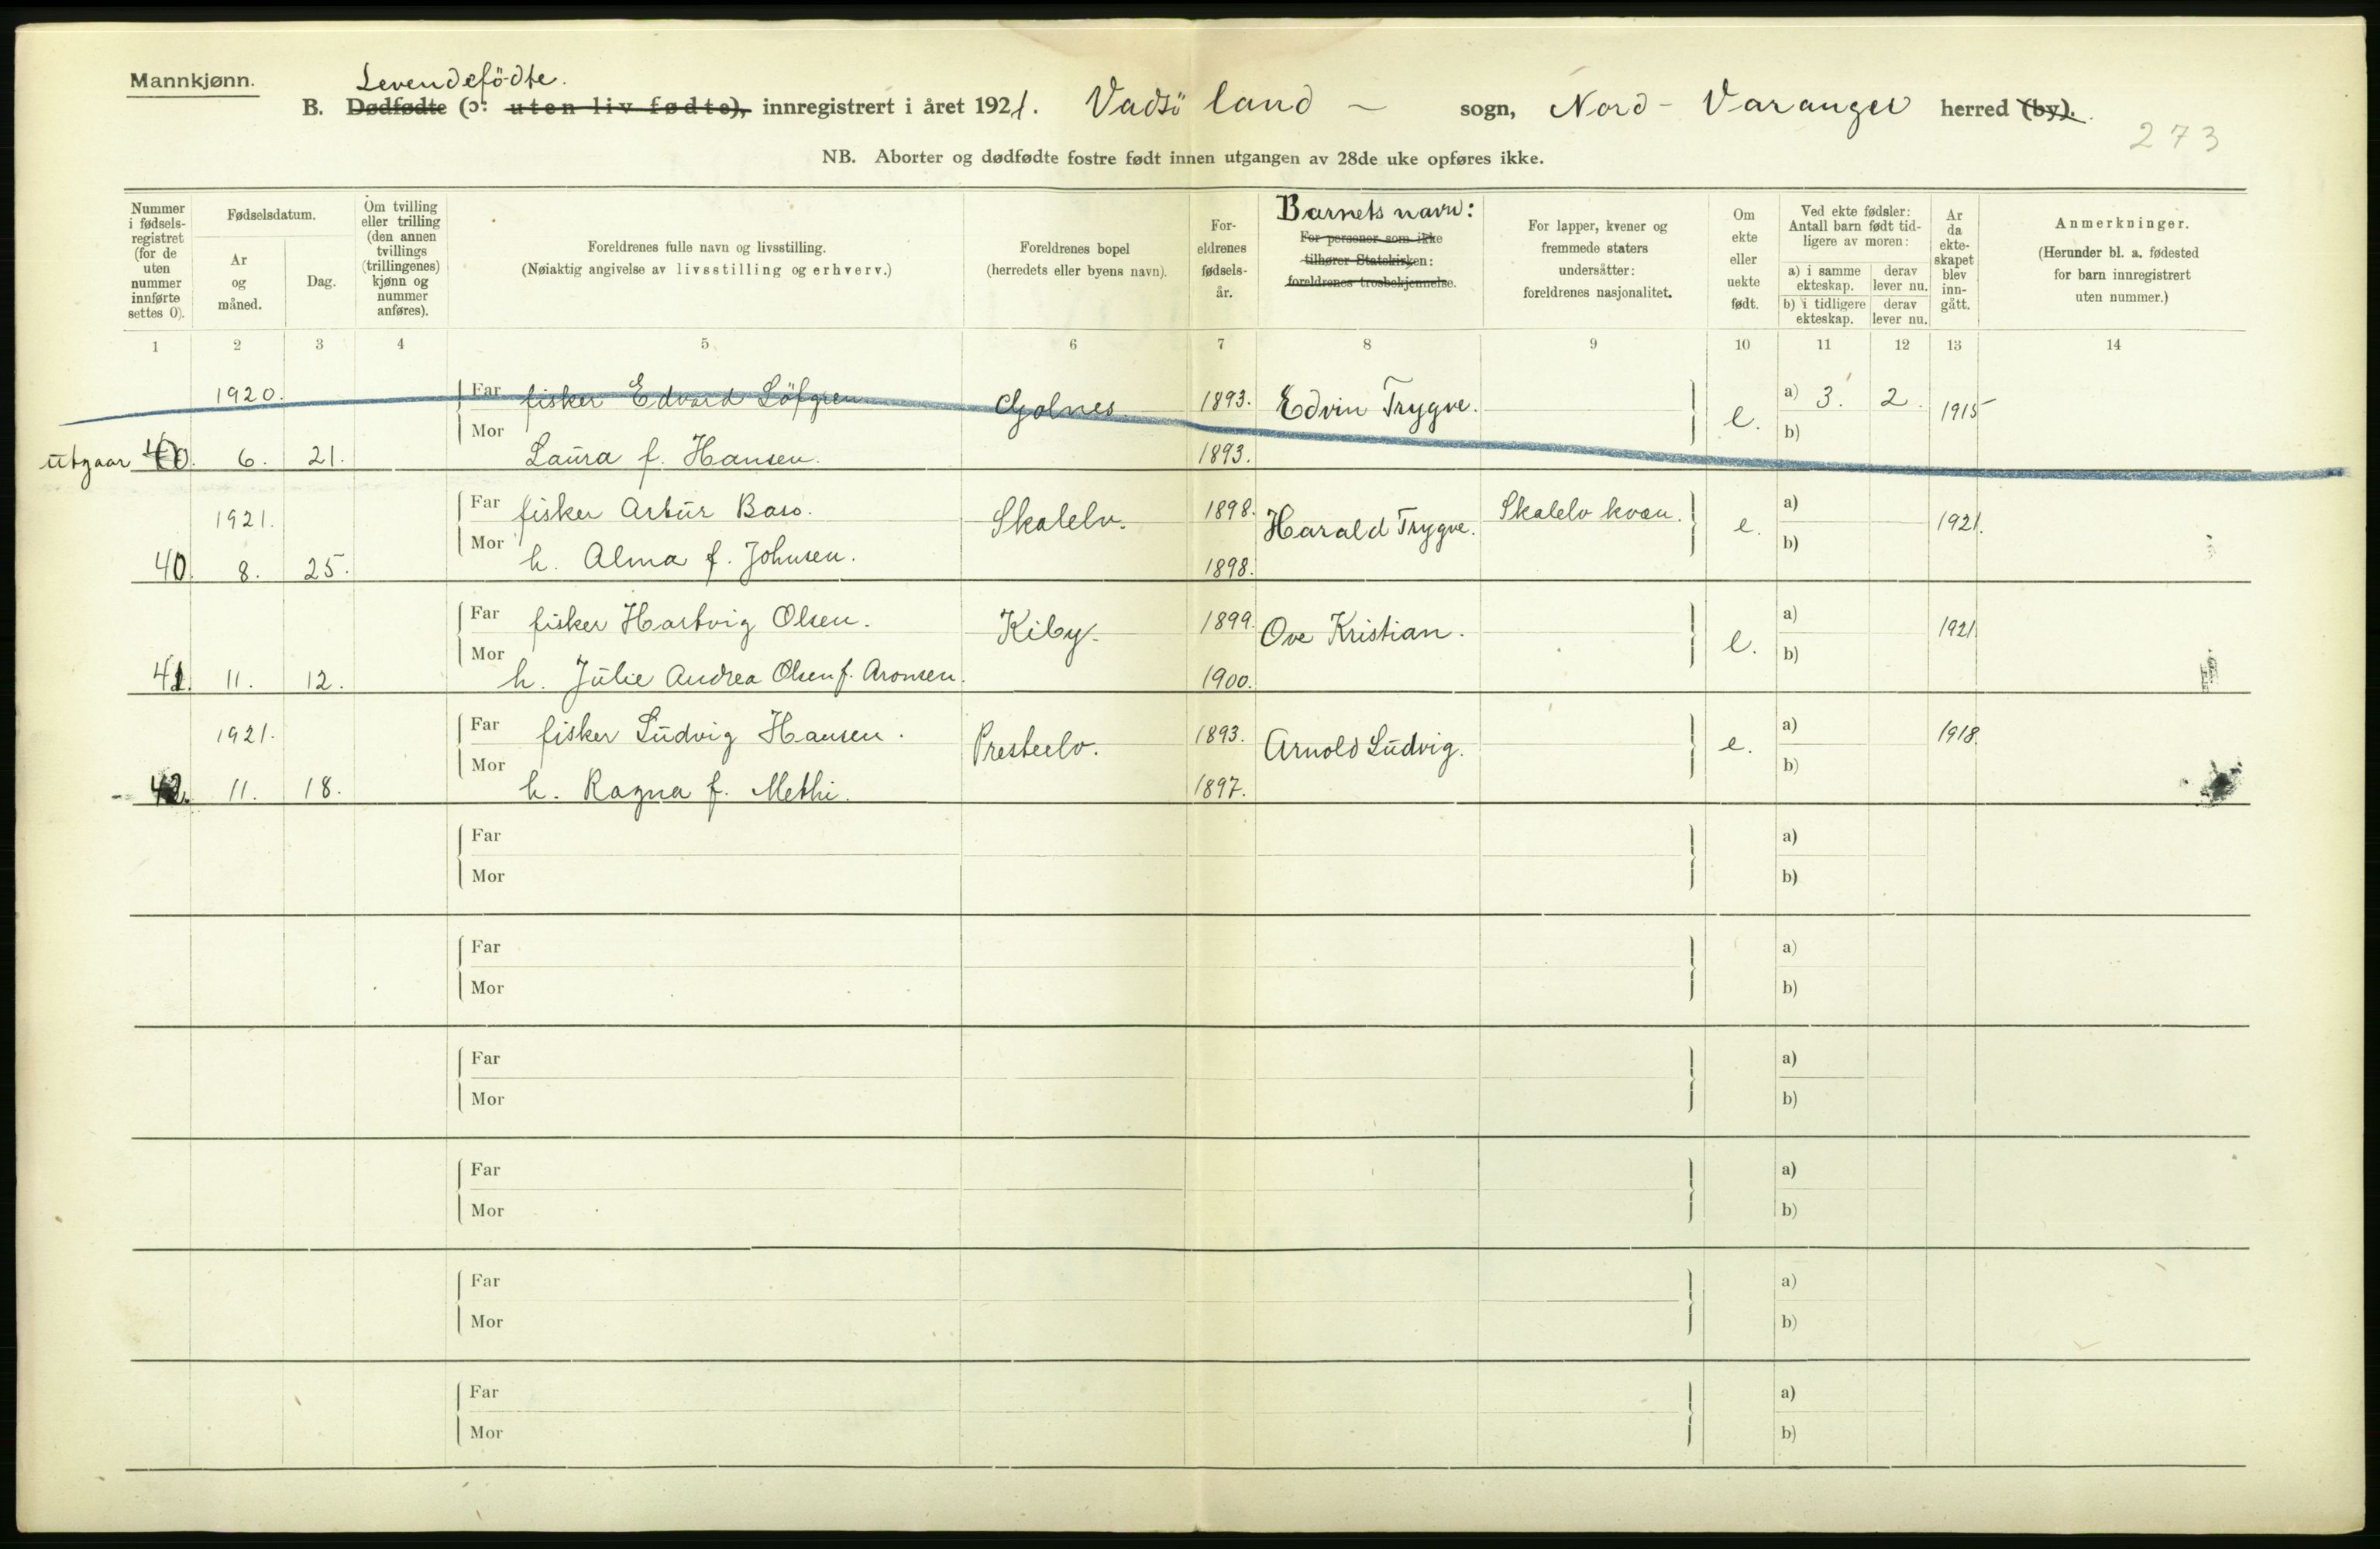 Mannkjønn.
Levendefödte.
B. Dødfødte (ɔ: uten liv fødte), innregistrert i året 1921. Vadsö land - sogn, Nord-Varanger herred (by).
273
NB. Aborter og dødfødte fostre født innen utgangen av 28de uke opføres ikke.
Nummer i fødselsregistret (for de uten nummer innførte settes 0).
Fødselsdatum.
År og måned.
Dag.
Om tvilling eller trilling (den annen tvillings (trillingenes) kjønn og nummer anføres).
Foreldrenes fulle navn og livsstilling.
(Nøiaktig angivelse av livsstilling og erhverv.)
Foreldrenes bopel
(herredets eller byens navn).
Foreldrenes fødselsår.
Barnets navn:
For personer som ikke tilhører Statskirken: foreldrenes trosbekjennelse.
For lapper, kvener og fremmede staters undersåtter: foreldrenes nasjonalitet.
Om ekte eller uekte født.
Ved ekte fødsler: Antall barn født tidligere av moren:
a) i samme ekteskap. derav lever nu.
b) i tidligere ekteskap. derav lever nu.
År da ekteskapet blev inngått.
Anmerkninger.
(Herunder bl. a. fødested for barn innregistrert uten nummer.)
1 2 3 4 5 6 7 8 9 10 11 12 13 14
1920. Far fisker Edvard Löfgren Golnes. 1893. Edvin Trygve. e. a) 3. 2. 1915
utgaar 40. 6. 21. Mor Laura f. Hansen. 1893. b)
1921. Far fisker Artur Baso. Skalelv. 1898. Harald Trygve. Skalelv kvæn. e. a) 1921.
40. 8. 25. Mor h. Alma f. Johnsen. 1898. b)
Far fisker Hartvig Olsen. Kiby. 1899. Ove Kristian. e. a) 1921
41. 11. 12. Mor h. Julie Andrea Olsen f. Aronsen. 1900. b)
1921. Far fisker Ludvig Hansen. Presteelv. 1893. Arnold Ludvig. e. a) 1918.
42. 11. 18. Mor h. Ragna f. Methi. 1897. b)
Far a)
Mor b)
Far a)
Mor b)
Far a)
Mor b)
Far a)
Mor b)
Far a)
Mor b)
Far a)
Mor b)